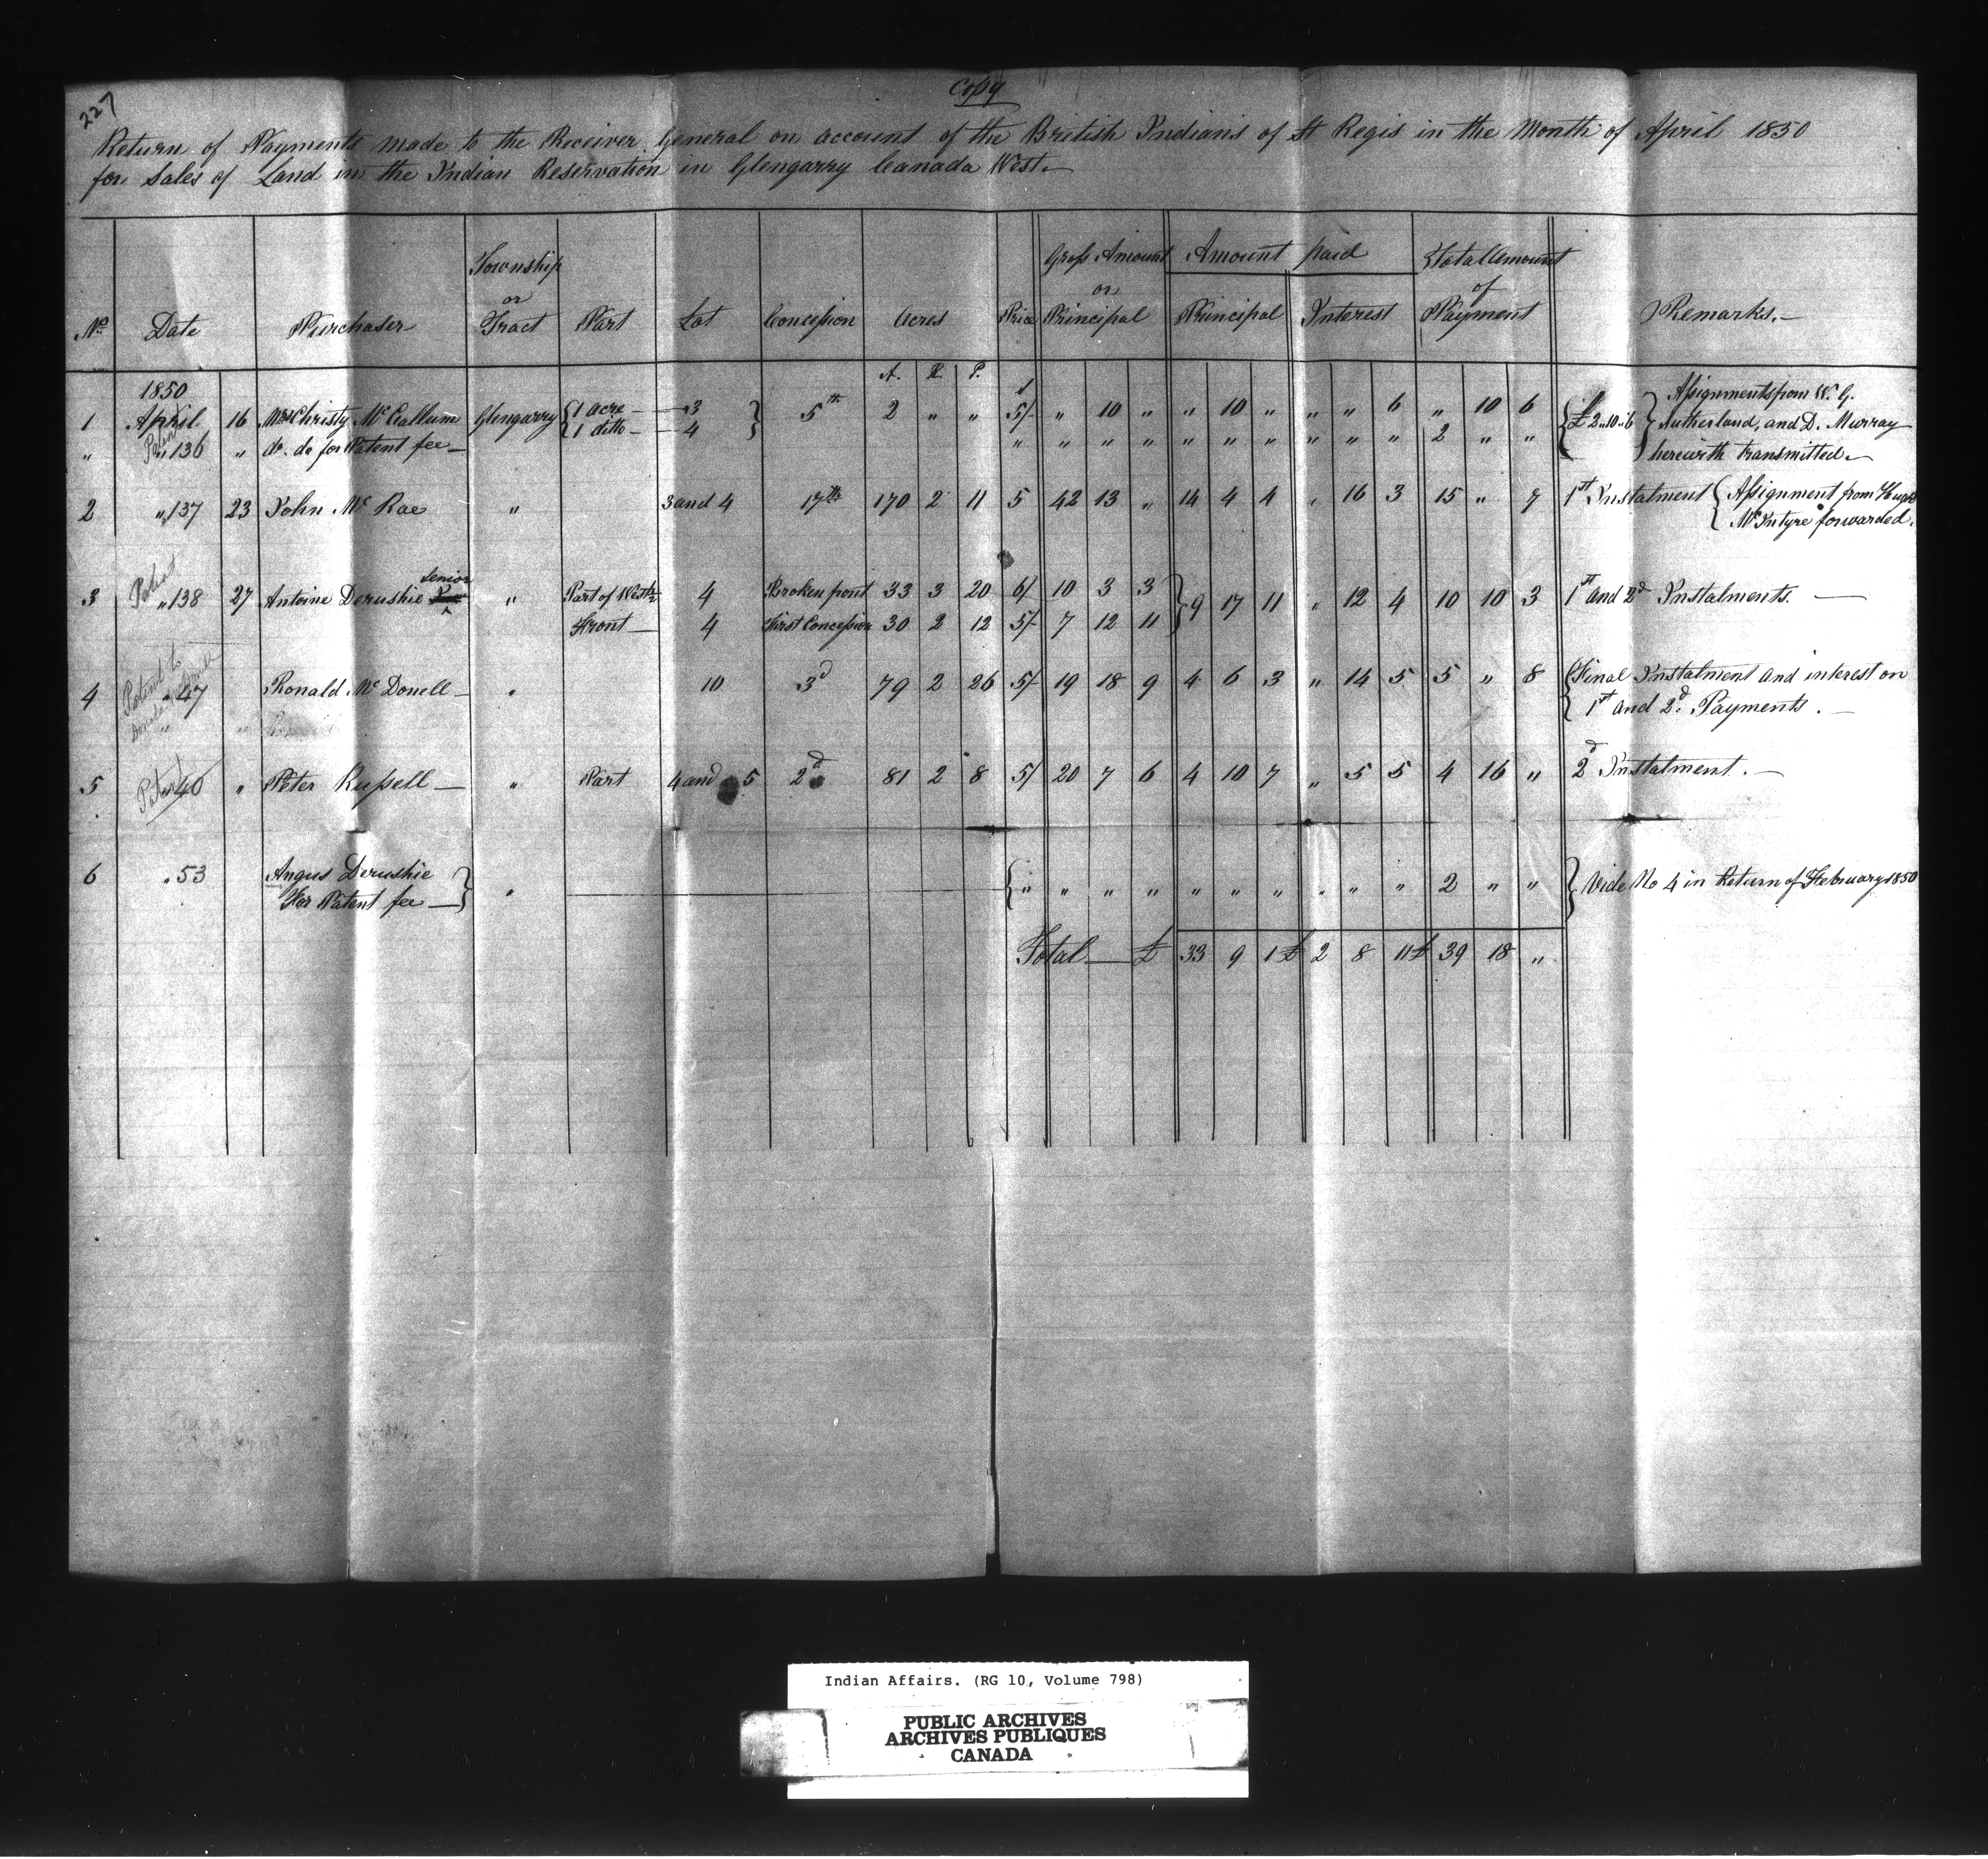 227
Copy
Return of Payments made to the Receiver General on account of the British Indians of St Regis in the Month of April 1850
for Sales of Land in the Indian Reservation in Glengarry Canada West.
No. Date Purchaser Township or Tract Part Lot Concession Acres Price Gross Amount or Principal Amount paid Principal Interest Total Amount of Payment Remarks.
A. R. P.
1850
1 April 16 Mrs Christy McCallum Glengarry { 1 acre — 3 } 5th 2 " " 5/- " 10 " " 10 " " " 6 " 10 6 { £2"10"6 } Assignments from W. G.
{ 1 ditto — 4 Sutherland, and D. Murray
" Patent " 136 " do. do for Patent fee — " " " " " " " " " " 2 " " herewith transmitted.
2 " 137 23 John McRae " 3 and 4 17th 170 2 11 5 42 13 " 14 4 4 " 16 3 15 " 7 1st Instalment { Assignment from Hugh
McIntyre forwarded.
3 Patent " 138 27 Antoine Derushie Senior " Part of West ½ 4 Broken front 33 3 20 6/ 10 3 3 } 9 17 11 " 12 4 10 10 3 1st and 2d Instalments. —
Front — 4 First Concession 30 2 12 5/- 7 12 11
4 Patent to " 47 Ronald McDonell — " 10 3d 79 2 26 5/- 19 18 9 4 6 3 " 14 5 5 " 8 { Final Instalment and interest on
1st and 2d. Payments. —
5 Patent 40 " Peter Russell — " Part 4 and 5 2d 81 2 8 5/ 20 7 6 4 10 7 " 5 5 4 16 " 2d Instalment. —
6 " 53 Angus Derushie
For Patent fee — } " { " " " " " " " " " " 2 " " } Vide No 4 in Return of February 1850
Total — £ 33 9 1 £ 2 8 11 £ 39 18 "
Indian Affairs. (RG 10, Volume 798)
PUBLIC ARCHIVES
ARCHIVES PUBLIQUES
CANADA